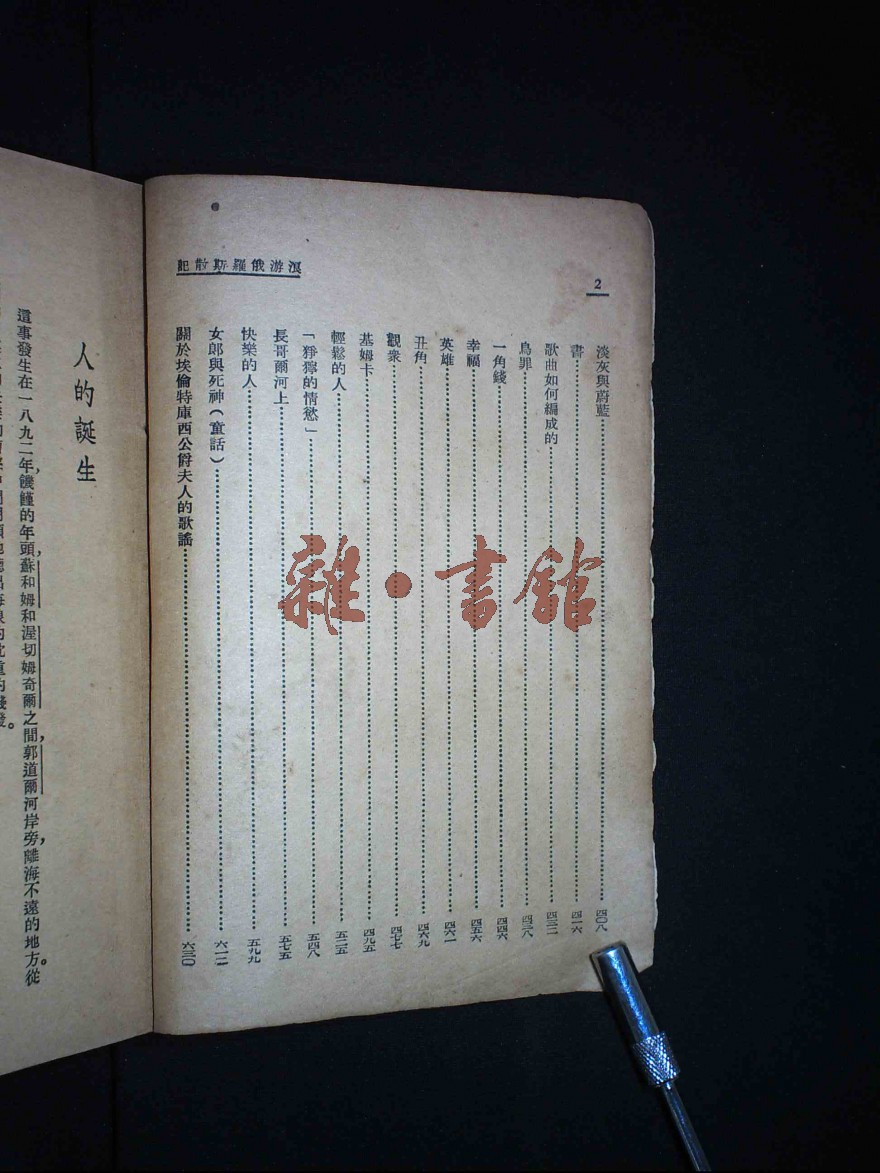 2
記散斯羅俄游浪
淡灰與蔚藍……四〇八
書……四一六
歌曲如何編成的……四三二
鳥罪……四三八
一角錢……四四六
幸福……四五六
英雄……四六一
丑角……四六九
觀衆……四七七
基姆卡……四九五
輕鬆的人……五二五
「猙獰的情慾」……五四八
長哥爾河上……五七五
快樂的人……五九九
女郎與死神(童話)……六一二
關於埃倫特庫西公爵夫人的歌謠……六三〇
雜·書館
人的誕生
這事發生在一八九二年,饑饉的年頭,蘇和姆和渥切姆奇爾之間,郭道爾河岸旁,離海不遠的地方。從